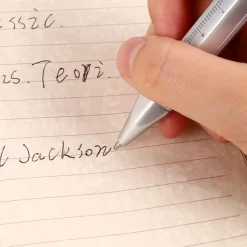 ssic.
s. Teori
l Jackson